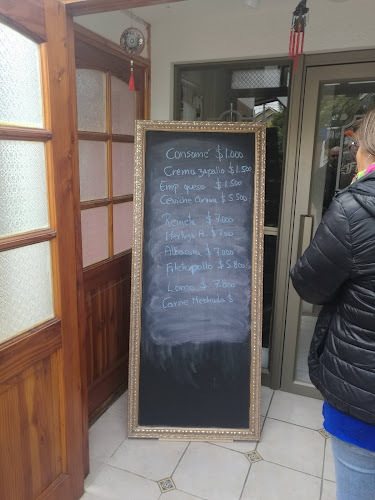 Consome $1.000
Crema zapallo $1.500
Emp queso $1.500
Ceviche Corvina $5.500
Reineta $7.000
Merluza A. $7.000
Albacora $7.000
Filetepollo $5.800
Lomo $7.800
Carne Mechada $